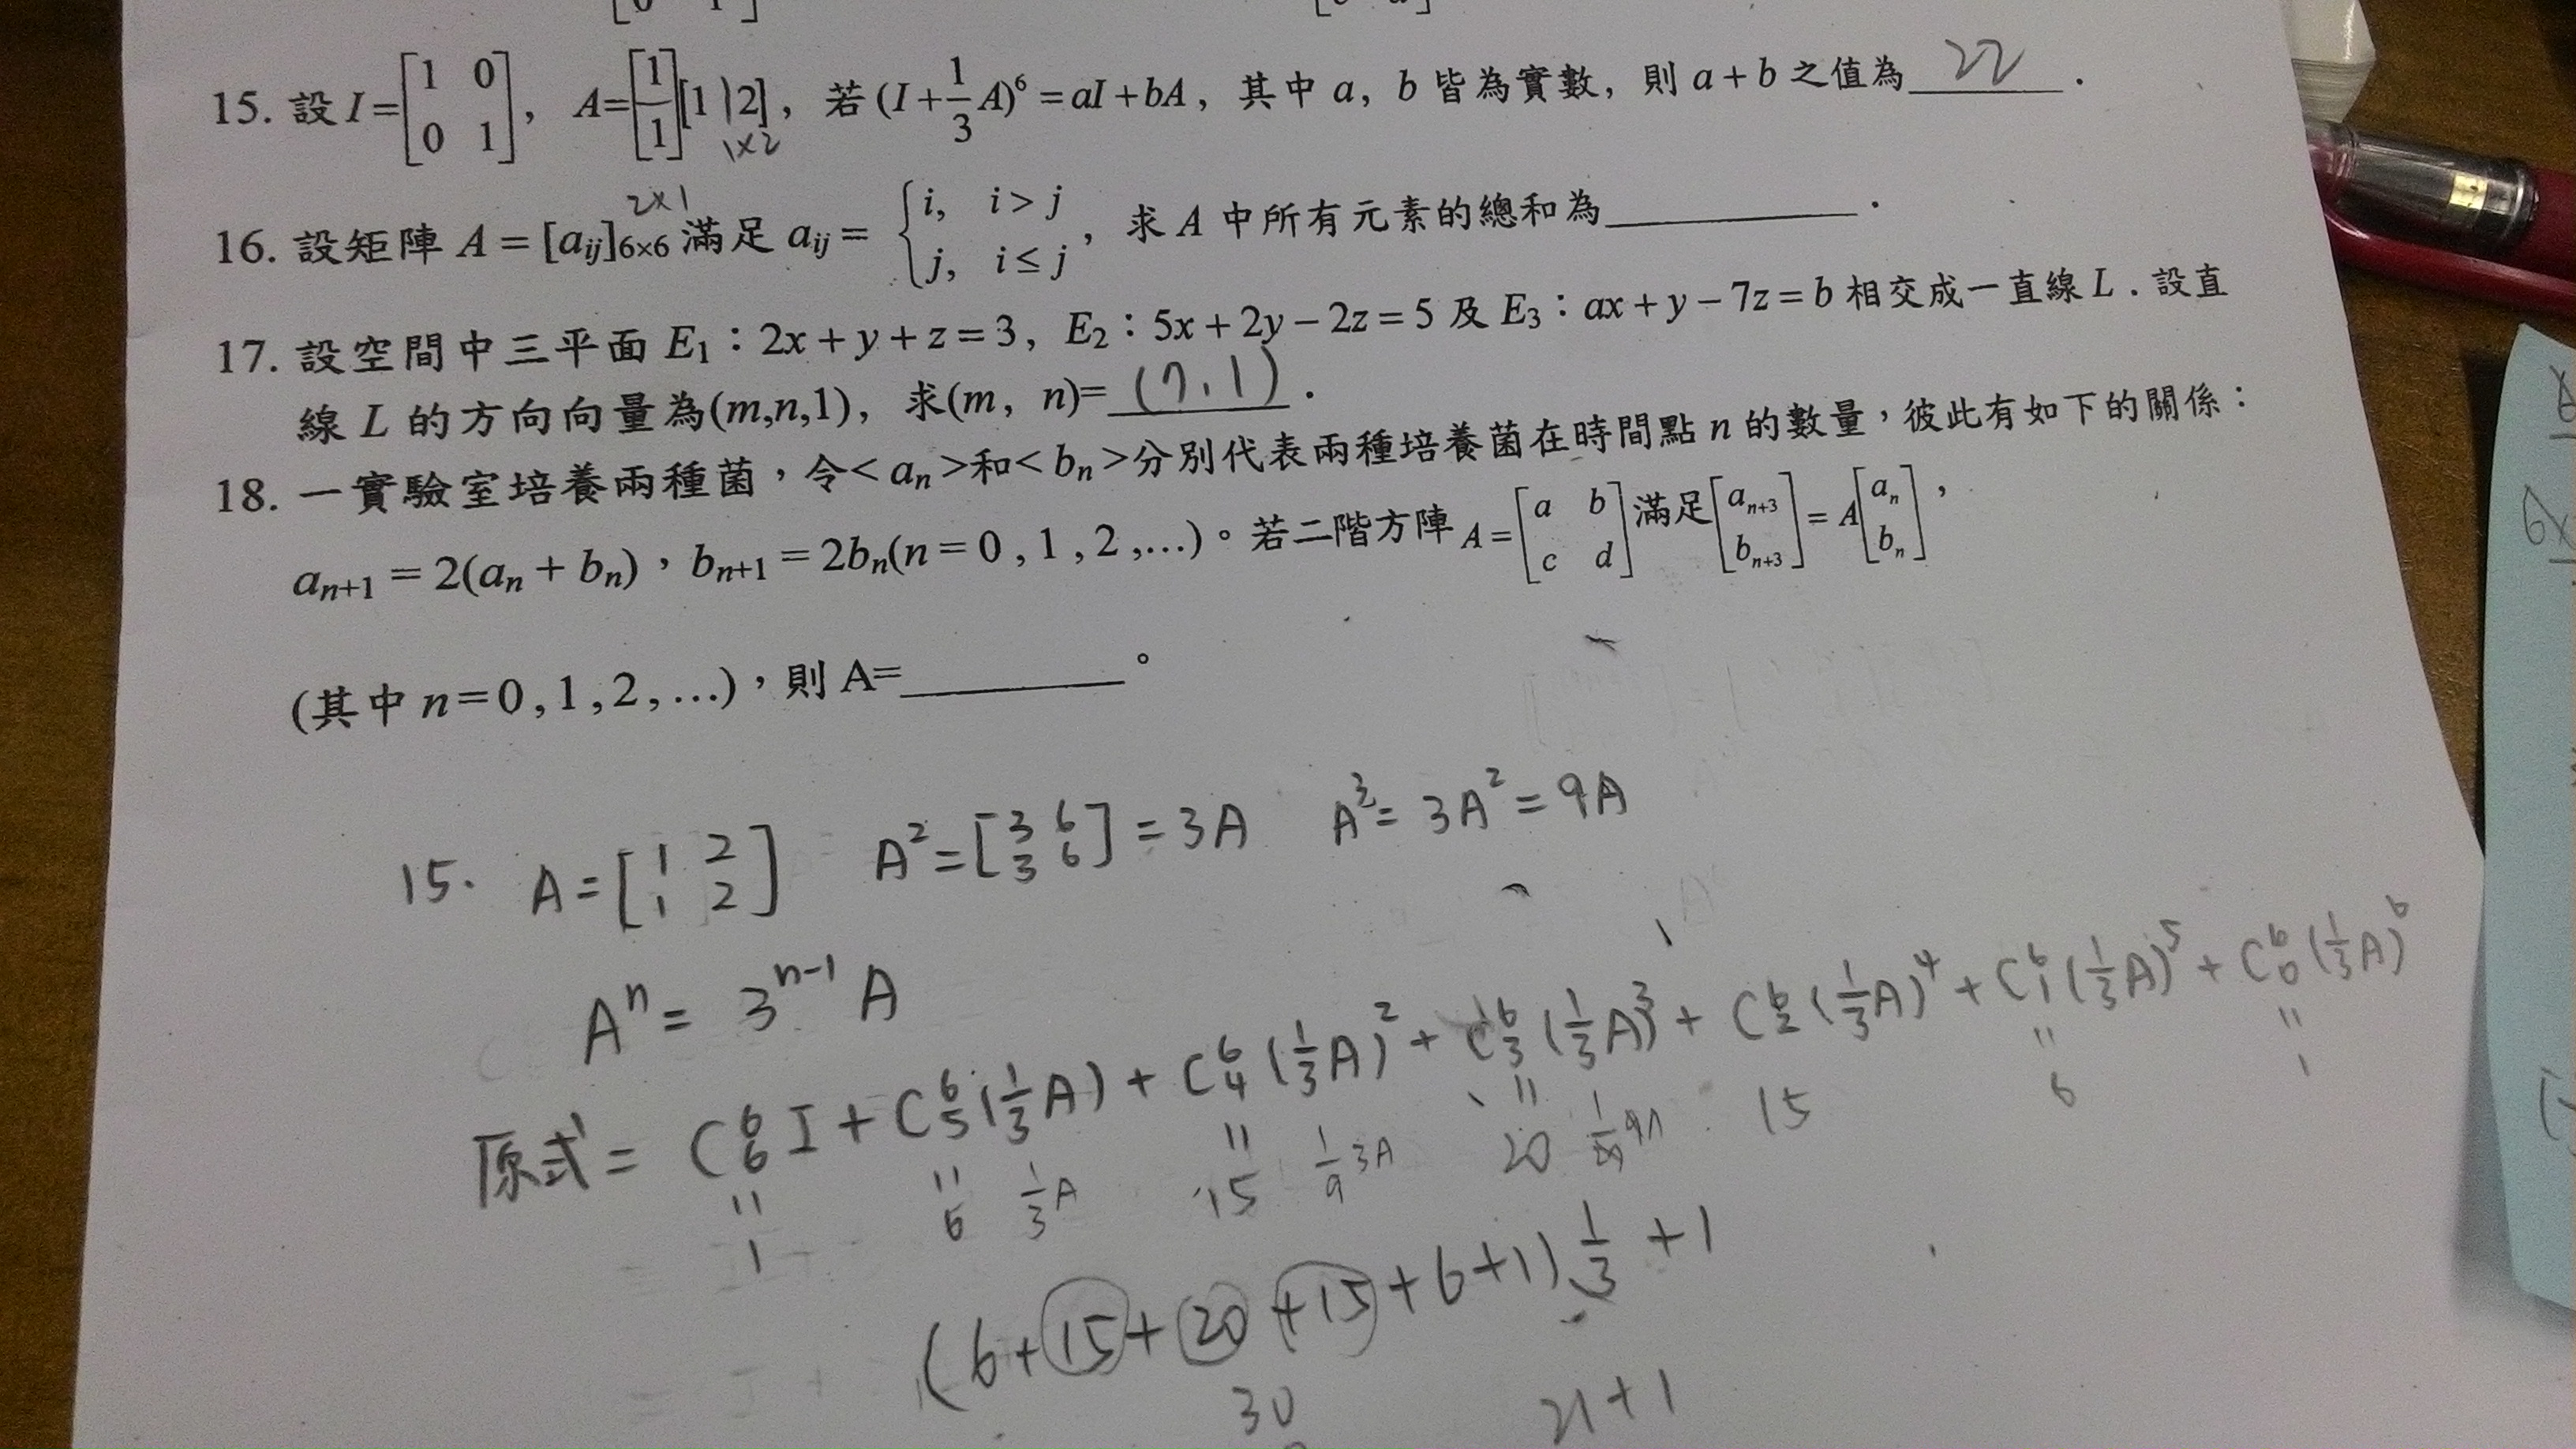 15. 設 I=[1 0 0 1], A=[1 1][1 2], 若 (I+1/3 A)⁶=aI+bA, 其中 a, b 皆為實數, 則 a+b 之值為 22 .
1×2
2×1
16. 設矩陣 A=[aij]6×6 滿足 aij= { i, i>j j, i≤j , 求 A 中所有元素的總和為______.
17. 設空間中三平面 E1:2x+y+z=3, E2:5x+2y−2z=5 及 E3:ax+y−7z=b 相交成一直線 L . 設直
線 L 的方向向量為(m,n,1), 求(m, n)= (7,1) .
18. 一實驗室培養兩種菌,令<an>和<bn>分別代表兩種培養菌在時間點 n 的數量,彼此有如下的關係:
an+1=2(an+bn),bn+1=2bn(n=0,1,2,…)。若二階方陣 A=[a b c d] 滿足 [an+3 bn+3]=A[an bn],
(其中 n=0,1,2,…),則 A=______。
15. A=[1 2 1 2] A²=[3 6 3 6]=3A A³=3A²=9A
Aⁿ=3ⁿ⁻¹A
原式= C⁶₆I+C⁶₅(1/3 A)+C⁶₄(1/3 A)²+C⁶₃(1/3 A)³+C⁶₂(1/3 A)⁴+C⁶₁(1/3 A)⁵+C⁶₀(1/3 A)⁶
" " " " " "
1 6 1/3 A 15 1/9 3A 20 15 6 1
(6+15+20+15+6+1)1/3+1
30 21+1